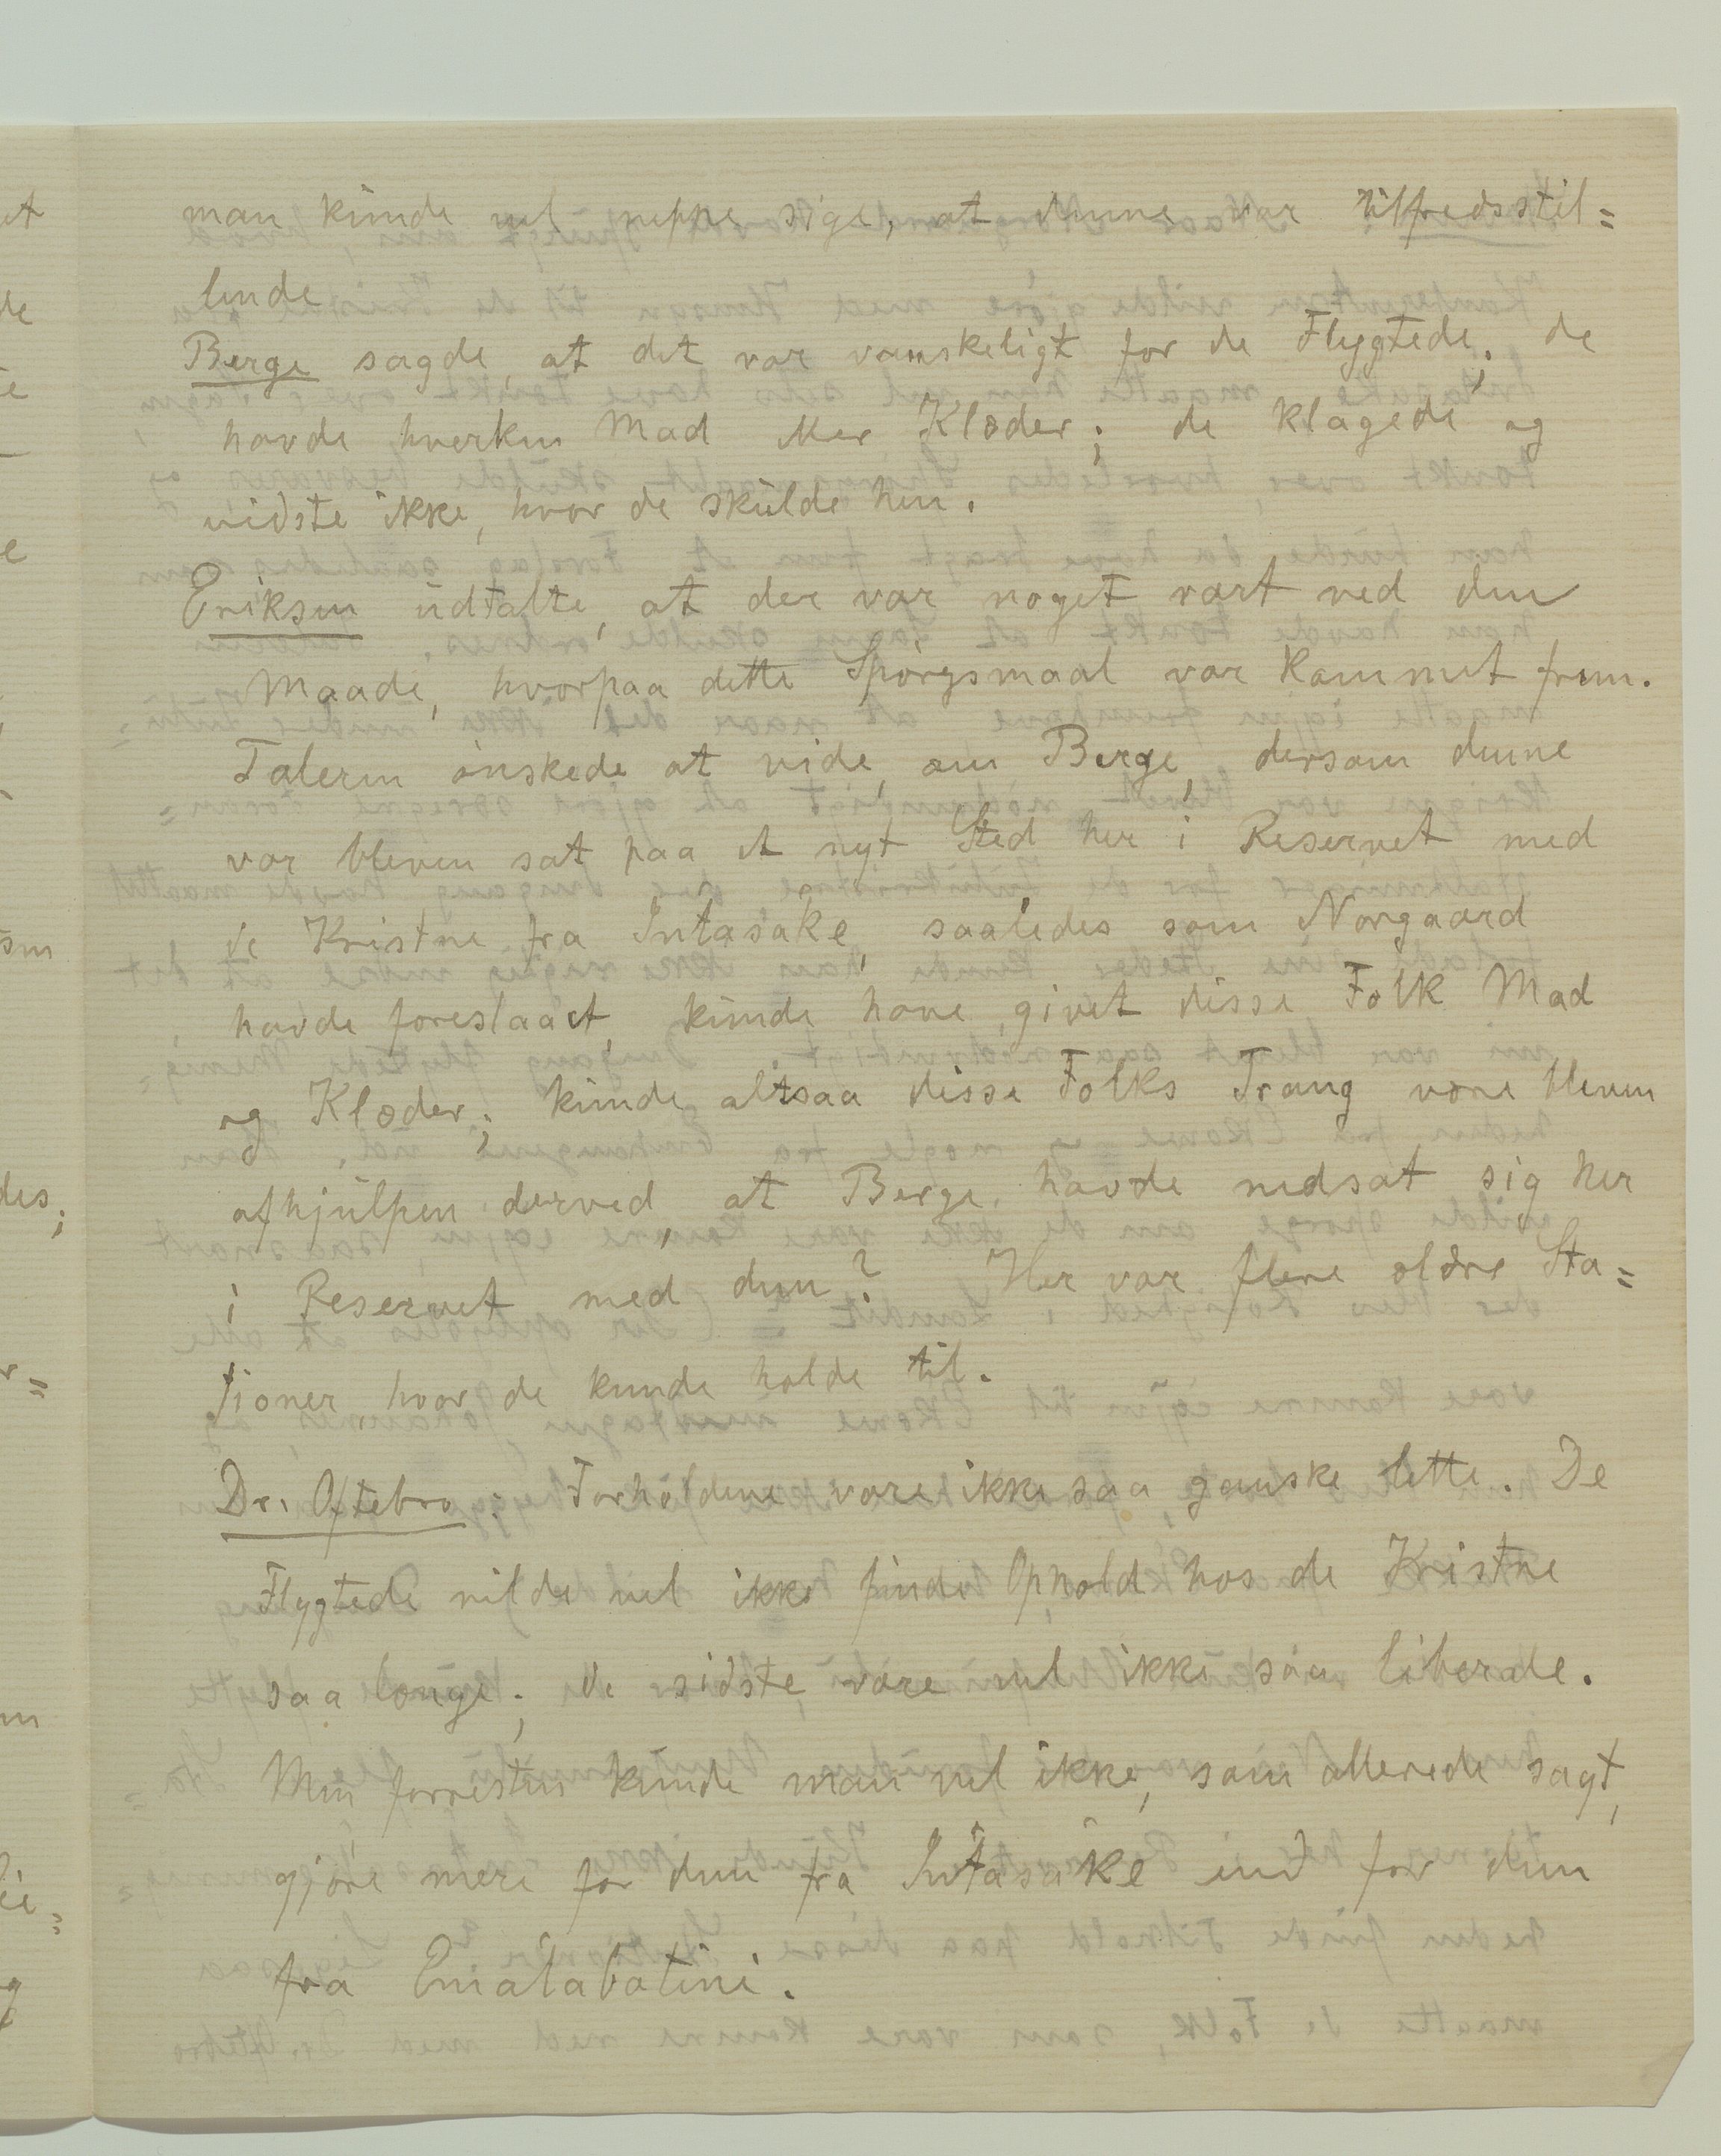 man kunde vel neppe sige, at denne var tilfredsstil=
lende
Berge sagde, at det var vanskeligt for de Flygtede; de
havde hverken Mad eller Klæder; de klagede og
vidste ikke, hvor de skulde hen.
Eriksen udtalte, at der var noget rart ved den
Maade, hvorpaa dette Spörgsmaal var kommet frem.
Taleren önskede at vide, om Berge, dersom denne
var bleven sat paa et nyt Sted her i Reservet med
de Kristne fra Intasake, saaledes som Norgaard
havde foreslaaet, kunde have givet disse Folk Mad
og Klæder; kunde altsaa disse Folks Trang være bleven
afhjulpen derved, at Berge havde nedsat sig her
i Reservet med dem? Her var flere ældre Sta=
tioner hvor de kunde holde til.
Dr. Oftebro: Forholdene vare ikke saa ganske lette. De
Flygtede vilde vel ikke finde Ophold hos de Kristne
saa længe; de sidste vare vel ikke saa liberale.
Men forresten kunde man vel ikke, som allerede sagt,
gjöre mere for dem fra Intasake end for dem
fra Emalabatini.